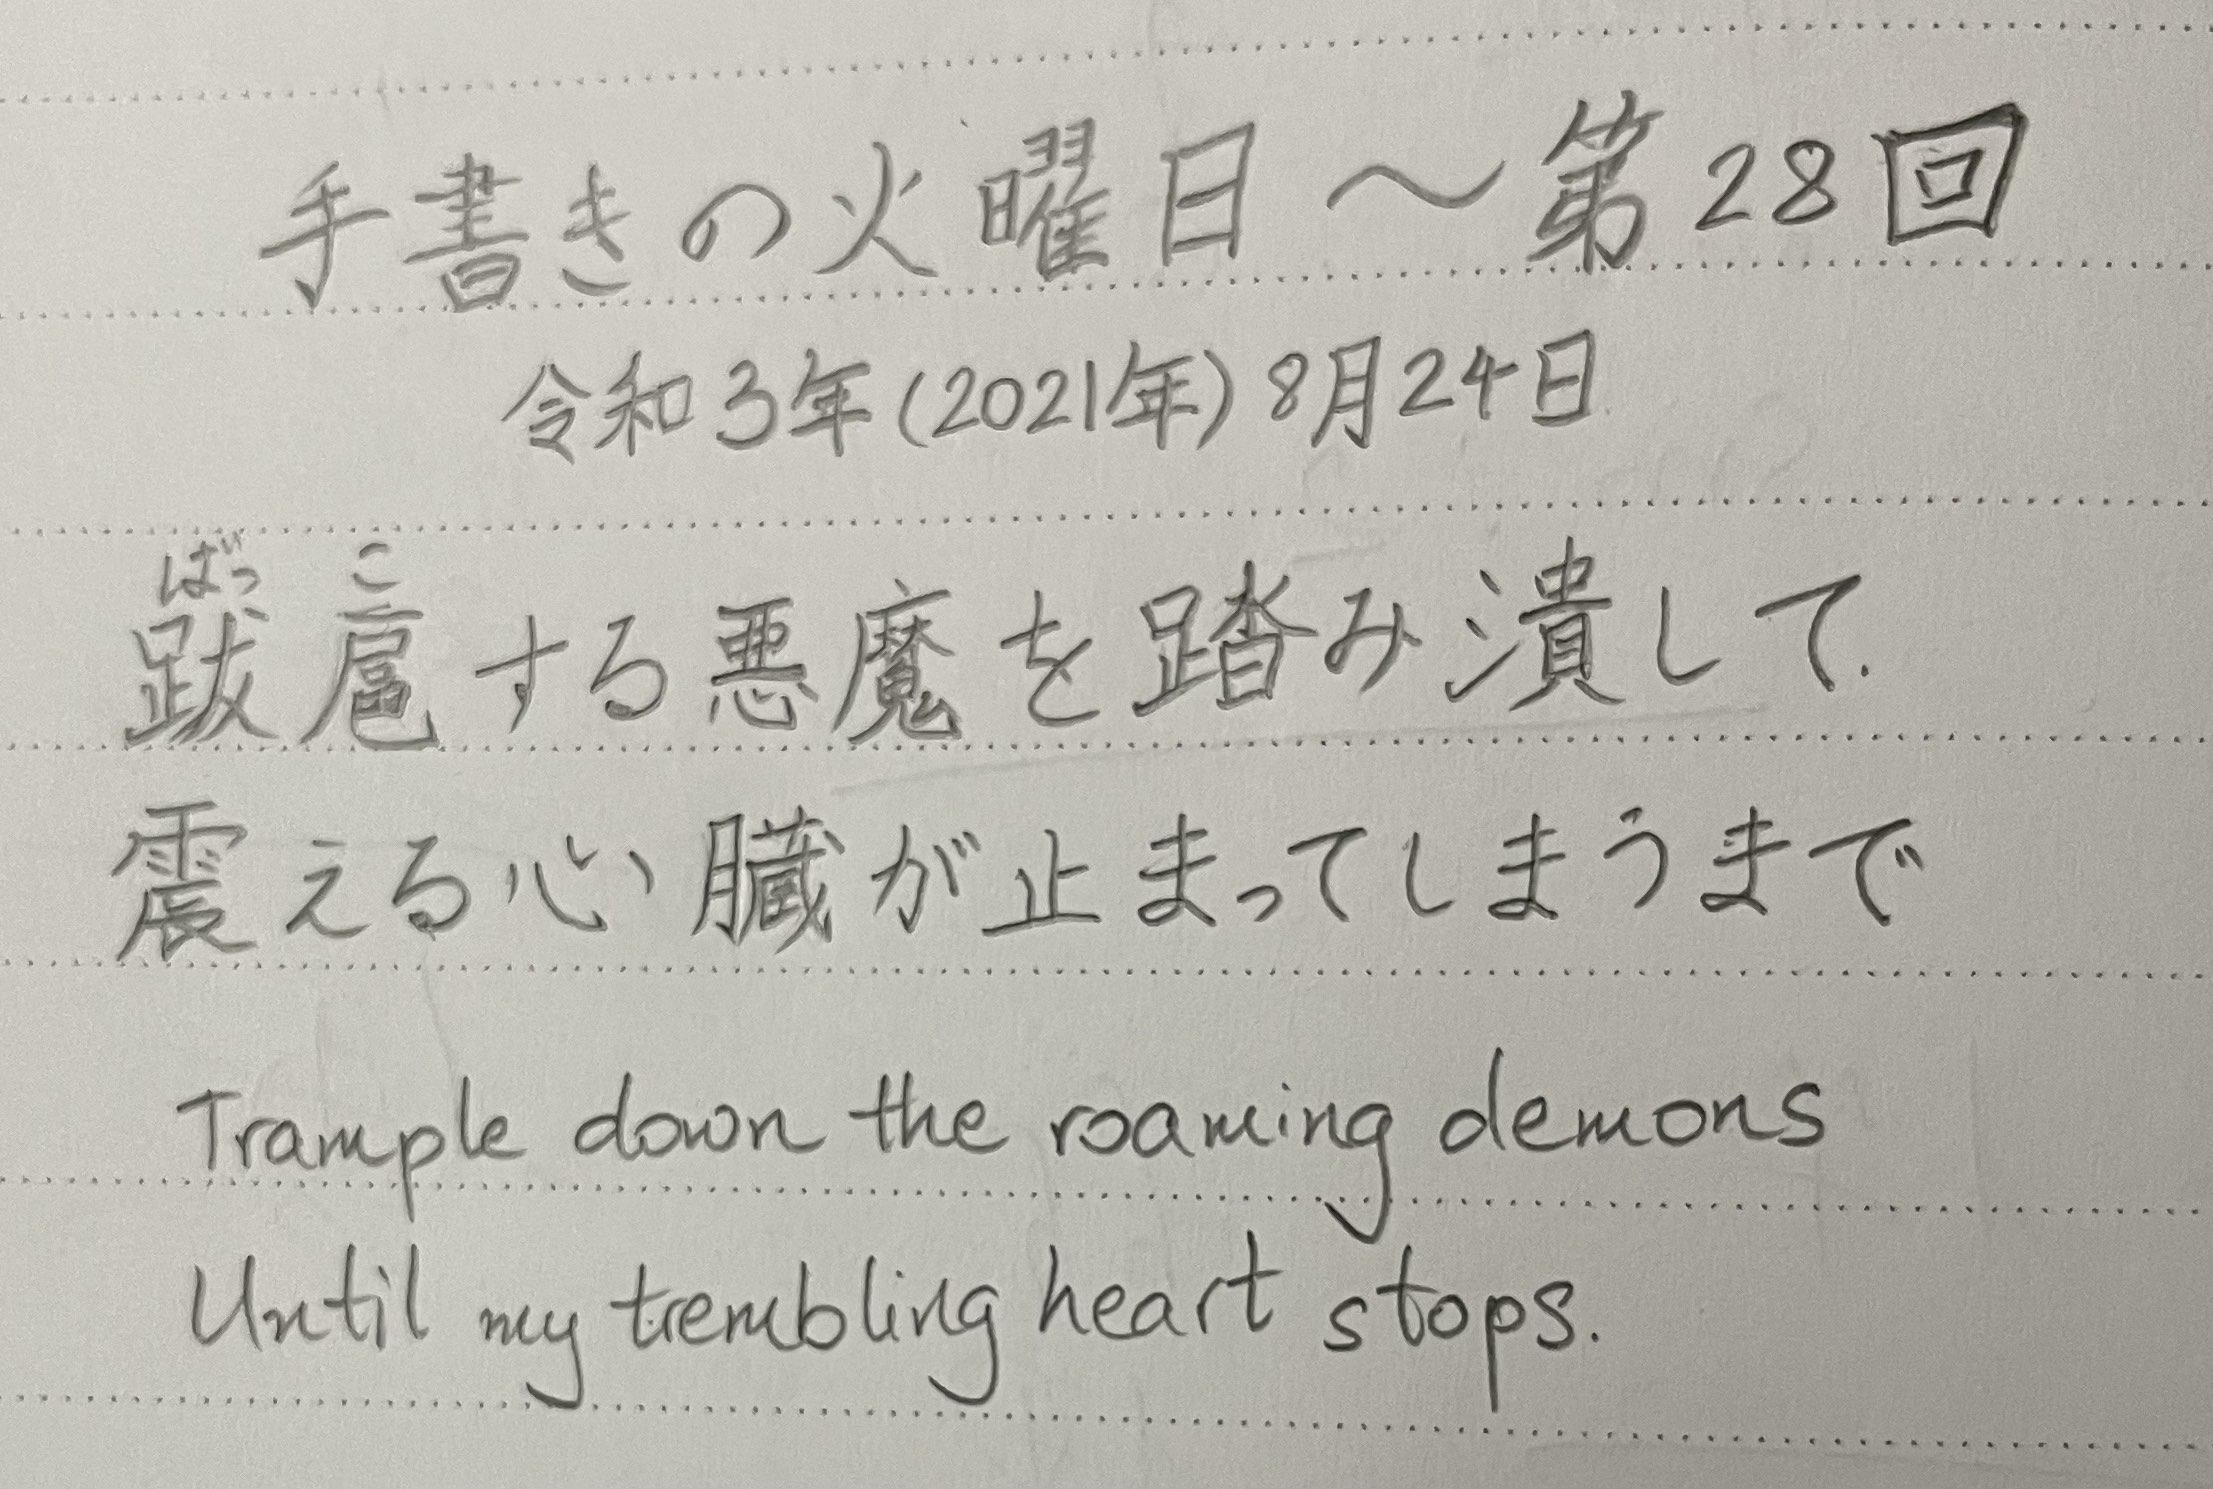 手書きの火曜日〜第28回
令和3年(2021年)8月24日
ばっこ
跋扈する悪魔を踏み潰して
震える心臓が止まってしまうまで
Trample down the roaming demons
Until my trembling heart stops.